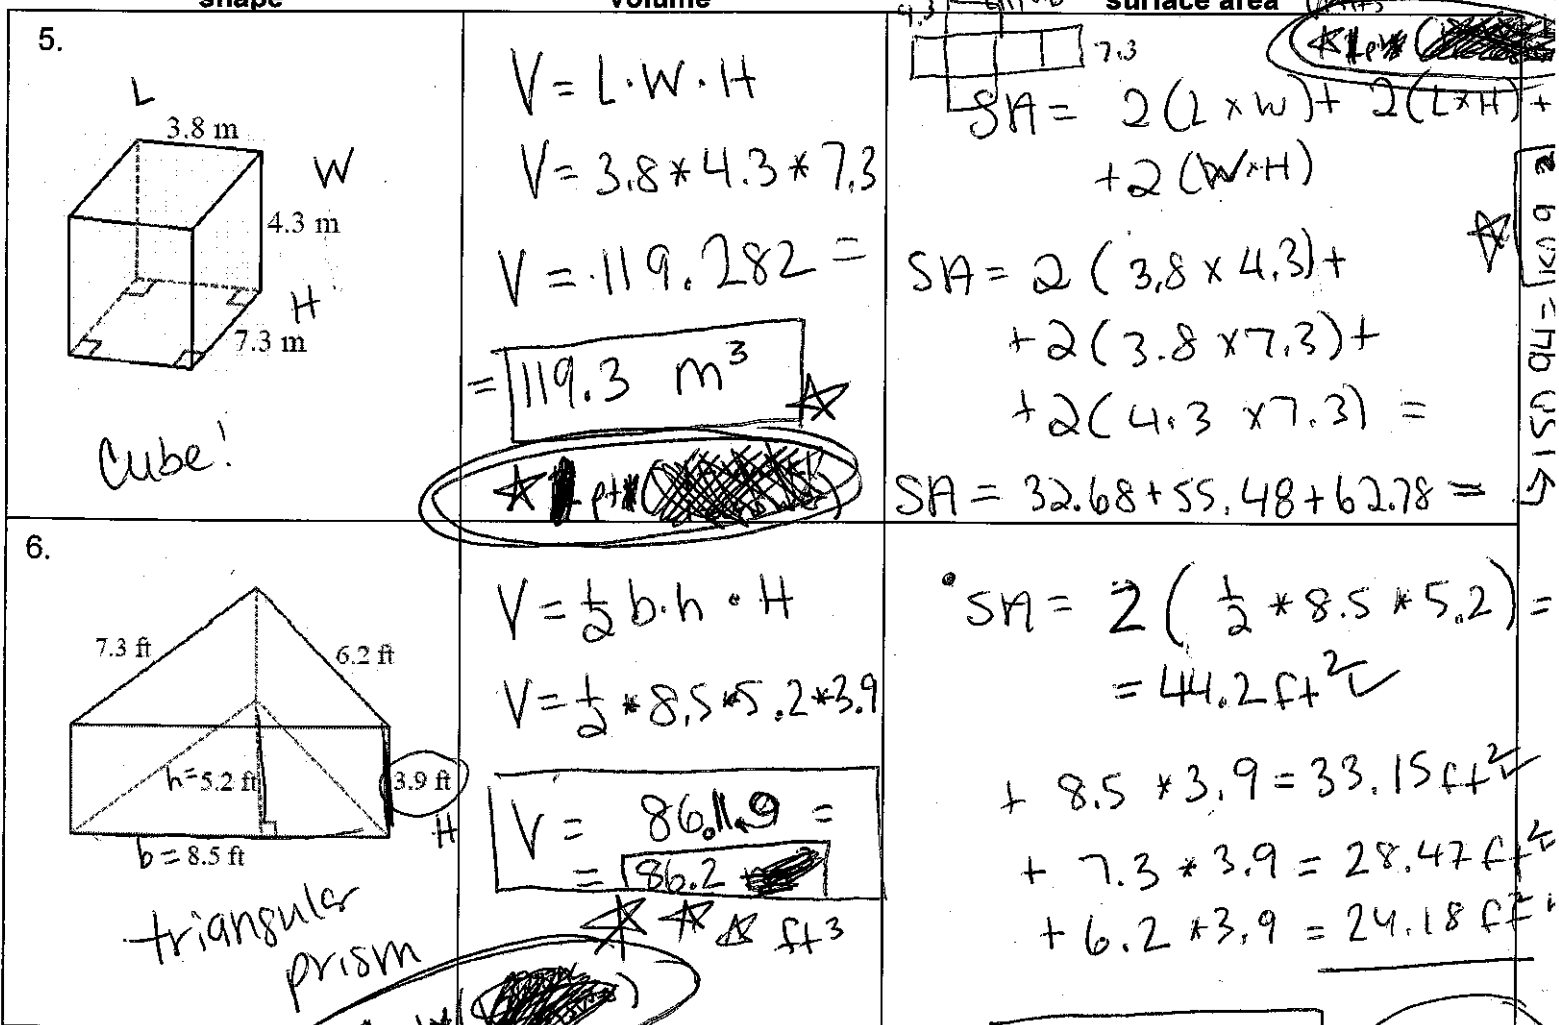 shape volume surface area
5.
L
3.8 m
W
4.3 m
H
7.3 m
Cube!
V = L·W·H
V = 3.8*4.3*7.3
V = 119.282 =
= 119.3 m³
pt
4.3
7.3
1 pt
SA = 2(L x W) + 2(L x H) +
+2 (W x H)
SA = 2 (3.8 x 4.3) +
+2 (3.8 x 7.3) +
+2 (4.3 x 7.3) =
SA = 32.68 + 55.48 + 62.78 =
→ 150.94 =
6.
7.3 ft
6.2 ft
h = 5.2 ft
3.9 ft
H
b = 8.5 ft
triangular
prism
V = ½ b·h • H
V = ½ * 8.5 * 5.2 * 3.9
V = 86.19 =
= 86.2
ft³
• SA = 2 ( ½ * 8.5 * 5.2 ) =
= 44.2 ft²
+ 8.5 * 3.9 = 33.15 ft²
+ 7.3 * 3.9 = 28.47 ft²
+ 6.2 * 3.9 = 24.18 ft²